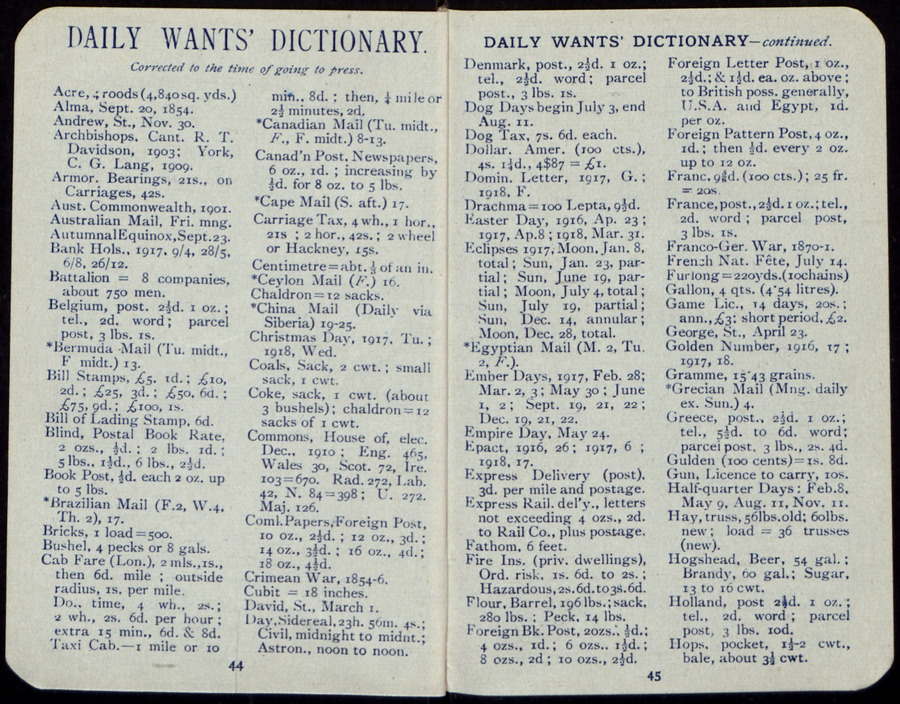 DAILY WANTS' DICTIONARY.
Corrected to the time of going to press.
Acre, 4 roods (4,840 sq. yds.)
Alma, Sept. 20, 1854.
Andrew, St., Nov. 30.
Archbishops, Cant. R. T.
Davidson, 1903; York,
C. G. Lang, 1909.
Armor. Bearings, 21s., on
Carriages, 42s.
Aust. Commonwealth, 1901.
Australian Mail, Fri. mng.
Autumnal Equinox, Sept. 23.
Bank Hols., 1917, 9/4, 28/5,
6/8, 26/12.
Battalion = 8 companies,
about 750 men.
Belgium, post. 2½d. 1 oz.;
tel., 2d. word; parcel
post, 3 lbs. 1s.
*Bermuda Mail (Tu. midt.,
F midt.) 13.
Bill Stamps, £5, 1d.; £10,
2d.; £25, 3d.; £50, 6d.;
£75, 9d.; £100, 1s.
Bill of Lading Stamp, 6d.
Blind, Postal Book Rate,
2 ozs., ½d.; 2 lbs. 1d.;
5 lbs., 1½d., 6 lbs., 2½d.
Book Post, ½d. each 2 oz. up
to 5 lbs.
*Brazilian Mail (F.2, W.4,
Th. 2), 17.
Bricks, 1 load=500.
Bushel, 4 pecks or 8 gals.
Cab Fare (Lon.), 2 mls., 1s.,
then 6d. mile; outside
radius, 1s. per mile.
Do., time, 4 wh., 2s.;
2 wh., 2s. 6d. per hour;
extra 15 min., 6d. & 8d.
Taxi Cab.—1 mile or 10
min., 8d.; then, ¼ mile or
2½ minutes, 2d.
*Canadian Mail (Tu. midt.,
F., F. midt.) 8-13.
Canad'n Post, Newspapers,
6 oz., 1d.; increasing by
½d. for 8 oz. to 5 lbs.
*Cape Mail (S. aft.) 17.
Carriage Tax, 4 wh., 1 hor.,
21s; 2 hor., 42s.; 2 wheel
or Hackney, 15s.
Centimetre=abt. ⅖ of an in.
*Ceylon Mail (F.) 16.
Chaldron=12 sacks.
*China Mail (Daily via
Siberia) 19-25.
Christmas Day, 1917, Tu.;
1918, Wed.
Coals, Sack, 2 cwt.; small
sack, 1 cwt.
Coke, sack, 1 cwt. (about
3 bushels); chaldron=12
sacks of 1 cwt.
Commons, House of, elec.
Dec., 1910; Eng. 465,
Wales 30, Scot. 72, Ire.
103=670. Rad. 272, Lab.
42, N. 84=398; U. 272.
Maj. 126.
Coml. Papers, Foreign Post,
10 oz., 2½d.; 12 oz., 3d.;
14 oz., 3½d.; 16 oz., 4d.;
18 oz., 4½d.
Crimean War, 1854-6.
Cubit = 18 inches.
David, St., March 1.
Day, Sidereal, 23h. 56m. 4s.;
Civil, midnight to midnt.;
Astron., noon to noon.
44
DAILY WANTS' DICTIONARY—continued.
Denmark, post., 2½d. 1 oz.;
tel., 2½d. word; parcel
post., 3 lbs. 1s.
Dog Days begin July 3, end
Aug. 11.
Dog Tax, 7s. 6d. each.
Dollar. Amer. (100 cts.),
4s. 1¼d., 4$87 = £1.
Domin. Letter, 1917, G.;
1918, F.
Drachma=100 Lepta, 9½d.
Easter Day, 1916, Ap. 23;
1917, Ap.8; 1918, Mar. 31.
Eclipses 1917, Moon, Jan. 8,
total; Sun, Jan. 23, par-
tial; Sun, June 19, par-
tial; Moon, July 4, total;
Sun, July 19, partial;
Sun, Dec. 14, annular;
Moon, Dec. 28, total.
*Egyptian Mail (M. 2, Tu.
2, F.).
Ember Days, 1917, Feb. 28;
Mar. 2, 3; May 30; June
1, 2; Sept. 19, 21, 22;
Dec. 19, 21, 22.
Empire Day, May 24.
Epact, 1916, 26; 1917, 6;
1918, 17.
Express Delivery (post).
3d. per mile and postage.
Express Rail. del'y., letters
not exceeding 4 ozs., 2d.
to Rail Co., plus postage.
Fathom, 6 feet.
Fire Ins. (priv. dwellings),
Ord. risk, 1s. 6d. to 2s.;
Hazardous, 2s. 6d. to 3s. 6d.
Flour, Barrel, 196 lbs.; sack,
280 lbs.; Peck, 14 lbs.
Foreign Bk. Post, 2ozs. ½d.;
4 ozs., 1d.; 6 ozs.. 1½d.;
8 ozs., 2d; 10 ozs., 2½d.
Foreign Letter Post, 1 oz.,
2½d.; & 1½d. ea. oz. above;
to British poss. generally,
U.S.A. and Egypt, 1d.
per oz.
Foreign Pattern Post, 4 oz.,
1d.; then ½d. every 2 oz.
up to 12 oz.
Franc, (100 cts.); 25 fr.
= 20s.
France, post., 2½d. 1 oz.; tel.,
2d. word; parcel post,
3 lbs. 1s.
Franco-Ger. War, 1870-1.
French Nat. Fête, July 14.
Furlong=220yds. (10chains)
Gallon, 4 qts. (4˙54 litres).
Game Lic., 14 days, 20s.;
ann., £3; short period, £2.
George, St., April 23.
Golden Number, 1916, 17;
1917, 18.
Gramme, 15˙43 grains.
*Grecian Mail (Mng. daily
ex. Sun.) 4.
Greece, post., 2½d. 1 oz.;
tel., 5½d. to 6d. word;
parcel post, 3 lbs., 2s. 4d.
Gulden (100 cents)=1s. 8d.
Gun, Licence to carry, 10s.
Half-quarter Days: Feb.8,
May 9, Aug. 11, Nov. 11.
Hay, truss, 56lbs. old; 60lbs.
new; load = 36 trusses
(new).
Hogshead, Beer, 54 gal.;
Brandy, 60 gal.; Sugar,
13 to 16 cwt.
Holland, post 2½d. 1 oz.;
tel., 2d. word; parcel
post, 3 lbs. 10d.
Hops, pocket, 1½-2 cwt.,
bale, about 3½ cwt.
45